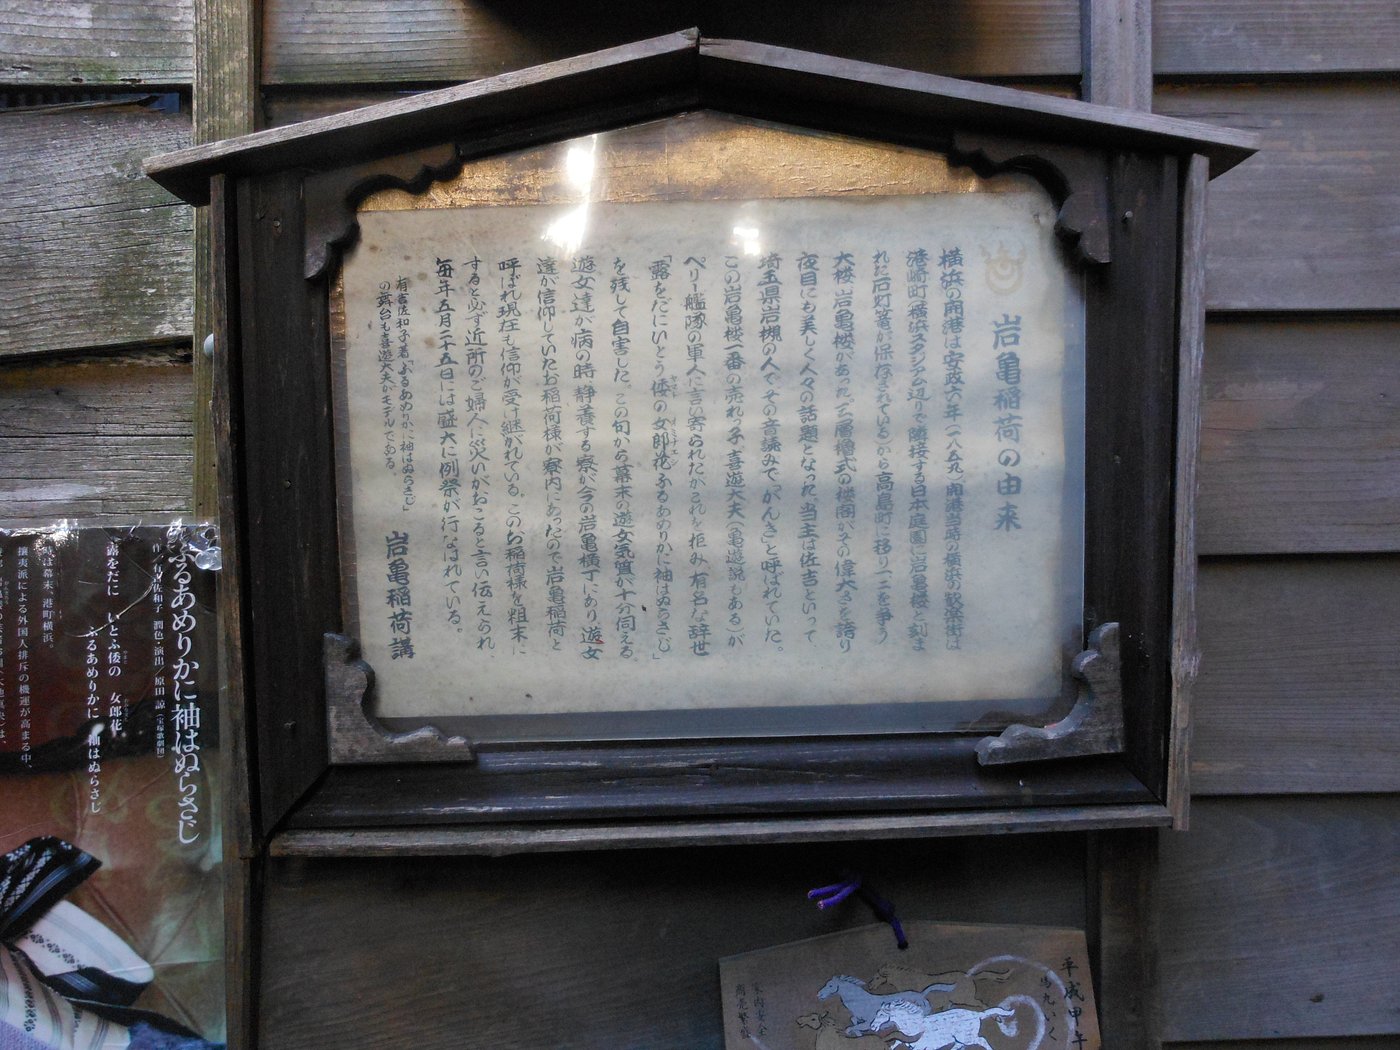 岩亀稲荷の由来
横浜の開港は安政六年(一八五九)開港当時の横浜の歓楽街は
港崎町(横浜スタジアム辺りで隣接する日本庭園に岩亀楼と刻ま
れた石灯篭が保存されている)から高島町に移り一二を争う
大楼 岩亀楼があった。三層楼式の楼閣がその偉大さを誇り
夜目にも美しく人々の話題となった。当主は佐吉といって
埼玉県岩槻の人でその音読みで「がんき」と呼ばれていた。
この岩亀楼一番の売れっ子 喜遊大夫(亀遊説もある)が
ペリー艦隊の軍人に言い寄られたがこれを拒み 有名な辞世
「露をだにいとう倭の女郎花ふるあめりかに袖はぬらさじ」
を残して自害した。この句から幕末の遊女気質が十分伺える。
遊女達が病の時 静養する寮が今の岩亀横丁にあり 遊女
達が信仰していたお稲荷様が寮内にあったので岩亀稲荷と
呼ばれ現在も信仰が受け継がれている。このお稲荷様を粗末に
すると必ず近所のご婦人に災いがおこると言い伝えられ、
毎年五月二十五日には盛大に例祭が行なはれている。
有吉佐和子著「ふるあめりかに袖はぬらさじ」
の舞台も喜遊大夫がモデルである。
岩亀稲荷講
ふるあめりかに袖はぬらさじ
作/有吉佐和子 潤色・演出/原田 諒(宝塚歌劇団)
露をだに いとふ倭の 女郎花
ふるあめりかに 袖はぬらさじ
時は幕末、港町横浜。
攘夷派による外国人排斥の機運が高まる中、
平成甲午
馬九いく
家内安全
商売繁盛